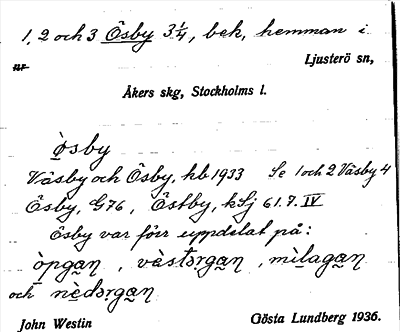 1, 2 och 3 Ösby 3¼, bek, hemman i
nr Ljusterö sn,
Åkers skg, Stockholms l.
ò̤sby
Väsby och Ösby, hb 1933 Se 1 och 2 Väsby 4
Ösby, G76, Östby, kSj 61.7. IV
Ösby var förr uppdelat på:
ò̤pga̰ṇ, västərga̰ṇ, mìlaga̰n
och nèdərga̰ṇ
John Westin Gösta Lundberg 1936.